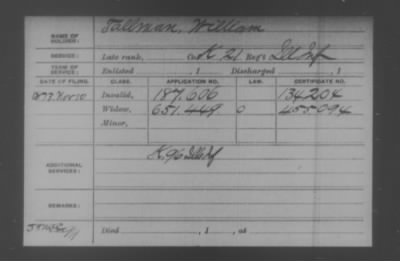 NAME OF SOLDIER:
Tallman, William
SERVICE:
Late rank, Co. K 21 Reg't Ill Inf
TERM OF SERVICE:
Enlisted , 1 Discharged , 1
DATE OF FILING. CLASS. APPLICATION NO. LAW. CERTIFICATE NO.
1873 Nov 10 Invalid, 187.606 134204
Widow, 651.449 O 455094
Minor,
ADDITIONAL SERVICES:
K, 96 Ills Inf
REMARKS:
Died , 1 , at